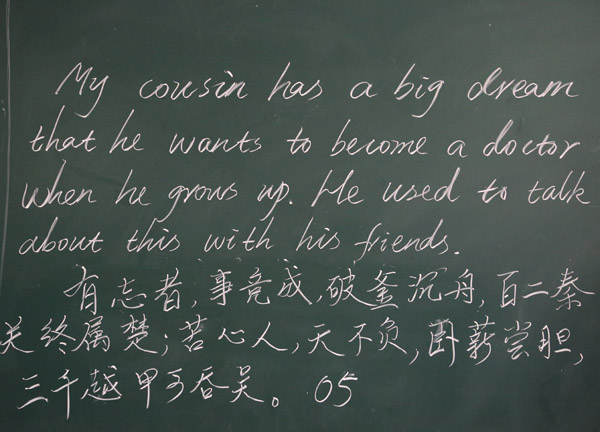 My cousin has a big dream
that he wants to become a doctor
when he grows up. He used to talk
about this with his friends.
有志者,事竟成,破釜沉舟,百二秦
关终属楚;苦心人,天不负,卧薪尝胆,
三千越甲可吞吴。05